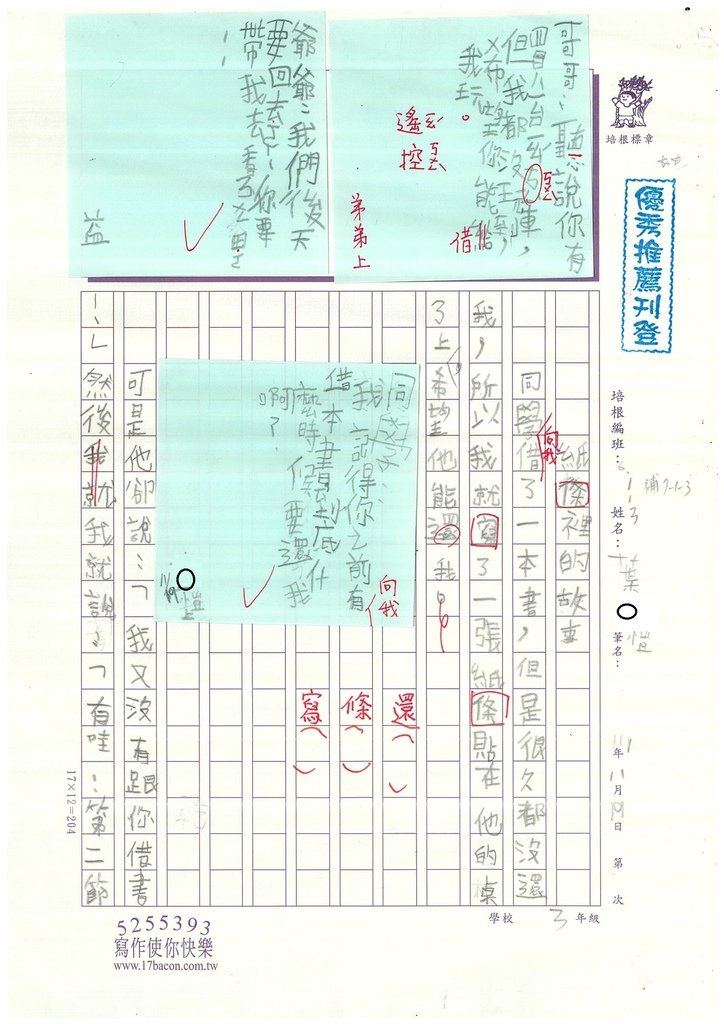 哥哥：聽說你有
買一台ㄧㄠˊ
但我都沒玩
希望你能
我玩。
遙ㄧㄠˊ
控ㄎㄨㄥˋ
借
弟弟上
爺爺：我們後天
要回去了，你要
帶我去看
益
培根標章
優秀推薦刊登
培根編班：
姓名：葉
愷
筆名：
年
月
日
第
次
學校
3年級
紙條裡的故事
同學借了一本書，但是很久都沒還
向我
我，所以我就寫了一張紙條貼在他的桌
ㄋ上，希望他能還我。
同學：
我記得你之前有
借本書，到底什
麼時候要還我
啊？
愷上
向我
還（）
條（）
寫（）
可是他卻說：「我又沒有跟你借書
」然後我就我就說：「有哇：第二節
17×12=204
5255393
寫作使你快樂
www.17bacon.com.tw